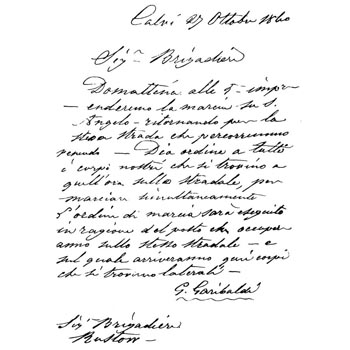 Calvi 27 Ottobre 1860
Sig.r Brigadiere
Domattina alle 5- impr-
-enderemo la marcia su S.
Angelo- ritornando per la
stessa strada che percorremmo
venendo- Dia ordine a tutti
i corpi nostri che si trovino a
quell'ora sullo stradale, per
marciar simultaneamente
L'ordine di marcia sarà eseguito
in ragione del posto che occupe-
anno sullo stesso stradale- e
sul quale arriveranno quei corpi
che si trovano laterali-
G. Garibaldi
Sig.r Brigadiere
Rustow-